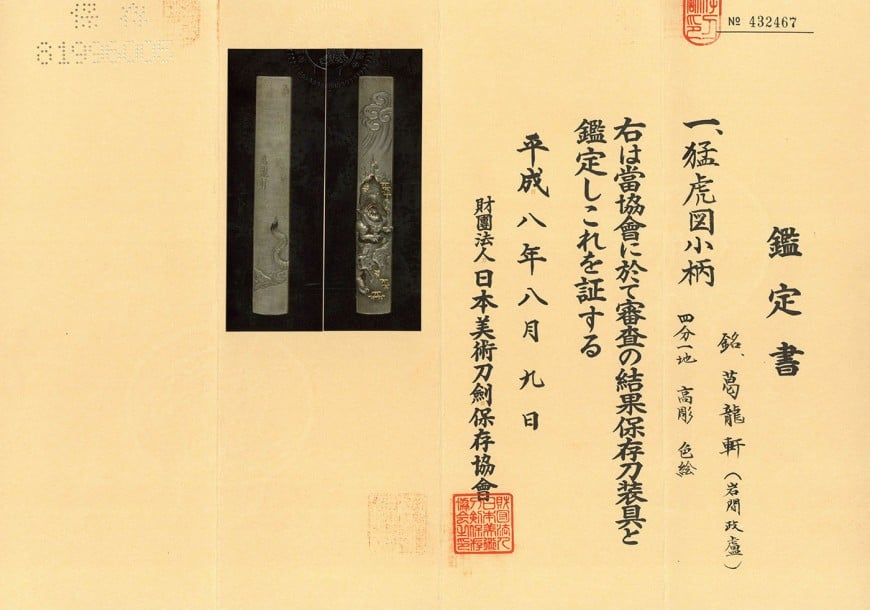 鑑定書
銘、葛龍軒(岩間政盧)
一、猛虎図小柄
四分一地 高彫 色絵
右は當協會に於て審査の結果保存刀装具と
鑑定しこれを証する
平成八年八月九日
財團法人日本美術刀劍保存協會
№ 432467
保存